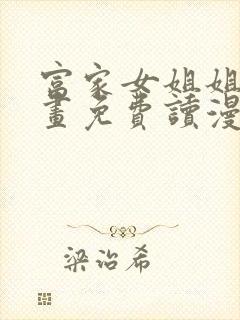 富家女姐姐
畫免費讀漫
梁治希